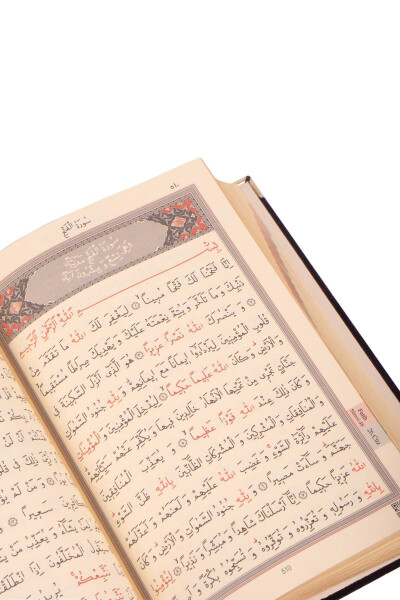 ٥١٠
سُورَةُ الْفَتْحِ
سُورَةُ الْفَتْحِ مَدَنِيَّةٌ
وَهِيَ تِسْعٌ وَعِشْرُونَ اٰيَةً
بِسْمِ اللّٰهِ الرَّحْمٰنِ الرَّحِيمِ
اِنَّا فَتَحْنَا لَكَ فَتْحًا مُبِينًا لِيَغْفِرَ لَكَ اللّٰهُ مَا تَقَدَّمَ مِنْ
ذَنْبِكَ وَمَا تَاَخَّرَ وَيُتِمَّ نِعْمَتَهُ عَلَيْكَ وَيَهْدِيَكَ صِرَاطًا مُسْتَقِيمًا
وَيَنْصُرَكَ اللّٰهُ نَصْرًا عَزِيزًا هُوَ الَّذِٓي اَنْزَلَ السَّكِينَةَ فِي
قُلُوبِ الْمُؤْمِنِينَ لِيَزْدَادُٓوا اِيمَانًا مَعَ اِيمَانِهِمْ وَلِلّٰهِ جُنُودُ السَّمٰوَاتِ
وَالْاَرْضِ وَكَانَ اللّٰهُ عَلِيمًا حَكِيمًا لِيُدْخِلَ الْمُؤْمِنِينَ وَالْمُؤْمِنَاتِ
جَنَّاتٍ تَجْرِي مِنْ تَحْتِهَا الْاَنْهَارُ خَالِدِينَ فِيهَا وَيُكَفِّرَ عَنْهُمْ سَيِّـَٔاتِهِمْ
وَكَانَ ذٰلِكَ عِنْدَ اللّٰهِ فَوْزًا عَظِيمًا وَيُعَذِّبَ الْمُنَافِقِينَ
وَالْمُنَافِقَاتِ وَالْمُشْرِكِينَ وَالْمُشْرِكَاتِ الظَّٓانِّينَ بِاللّٰهِ ظَنَّ السَّوْءِ
عَلَيْهِمْ دَٓائِرَةُ السَّوْءِ وَغَضِبَ اللّٰهُ عَلَيْهِمْ وَلَعَنَهُمْ وَاَعَدَّ لَهُمْ
جَهَنَّمَ وَسَٓاءَتْ مَصِيرًا وَلِلّٰهِ جُنُودُ السَّمٰوَاتِ وَالْاَرْضِ وَكَانَ
اللّٰهُ عَزِيزًا حَكِيمًا اِنَّٓا اَرْسَلْنَاكَ شَاهِدًا وَمُبَشِّرًا وَنَذِيرًا لِتُؤْمِنُوا
بِاللّٰهِ وَرَسُولِهِ وَتُعَزِّرُوهُ وَتُوَقِّرُوهُ وَتُسَبِّحُوهُ بُكْرَةً وَاَصِيلًا
510